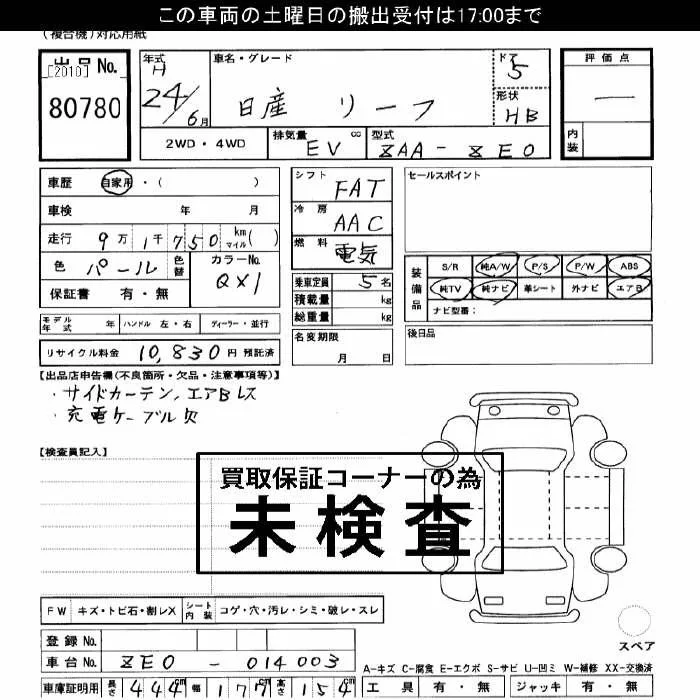 この車両の土曜日の搬出受付は17:00まで
(複合機)対応用紙
出品No.
[2010]
80780
年式 H 24/6月
車名・グレード
日産 リーフ
ドア 5
形状 HB
評価点
—
内装
2WD・4WD
排気量 EV cc
型式 ZAA-ZE0
車歴 自家用・( )
車検 年 月
走行 9万1千750 km マイル( )
色 パール 色替
カラーNo. QX1
保証書 有・無
シフト FAT
冷房 AAC
燃料 電気
乗車定員 5名
積載量 kg
総重量 kg
名変期限
月 日
セールスポイント
装備品
S/R 純A/W P/S P/W ABS
純TV 純ナビ 革シート 外ナビ エアB
ナビ型番:
後日品
モデル年式 年 ハンドル 左・右 ディーラー・並行
リサイクル料金 10,830 円 預託済
【出品店申告欄(不良箇所・欠品・注意事項等)】
・サイドカーテン,エアBレス
・充電ケーブル欠
【検査員記入】
買取保証コーナーの為
未検査
FW キズ・トビ石・割レX シート内装 コゲ・穴・汚レ・シミ・破レ・スレ
登録No.
車台No. ZE0-014003
車庫証明用 長さ 444cm 幅 177cm 高さ 154cm
スペア
A-キズ C-腐食 E-エクボ S-サビ U-凹ミ W-補修 XX-交換済
工具 有・無 ジャッキ 有・無